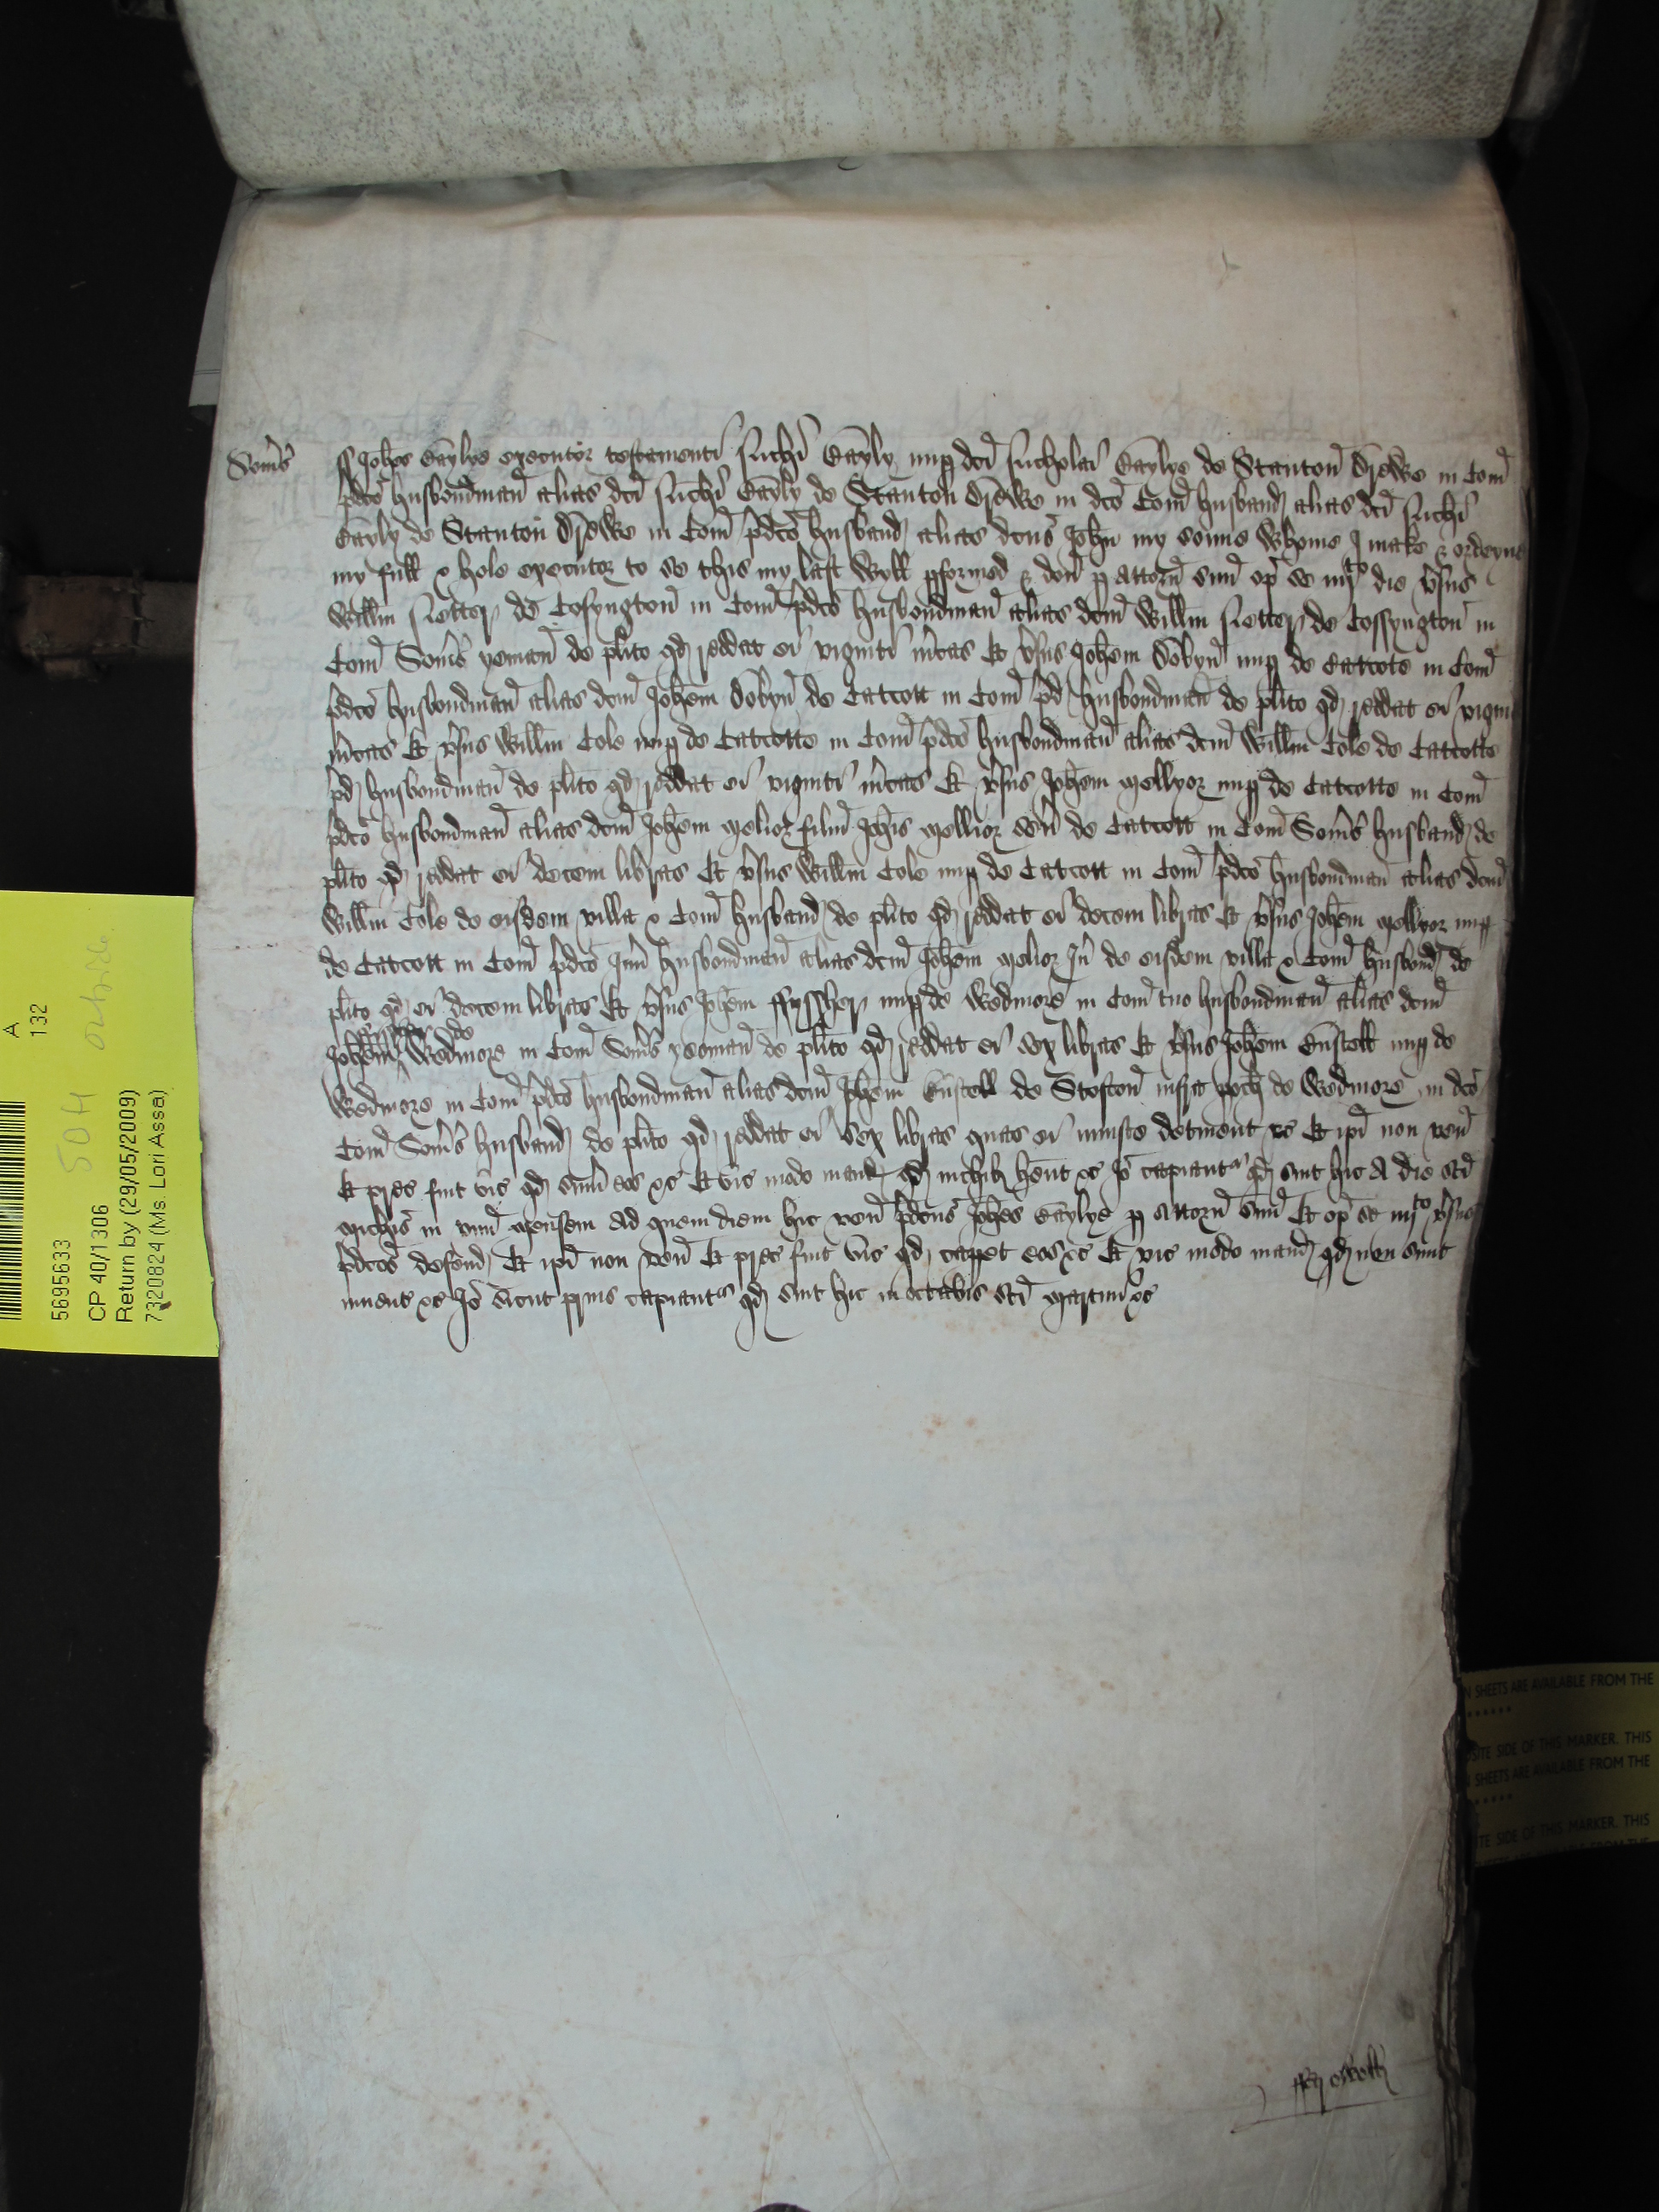 Som̃s ss Joh̃es Caylye executor testamenti Nich̃i Cayly nup dc̃i Nicholai Caylye de Stanton Drewe in Com̃
p̃dc̃o husbondman̄ alias dc̃i Nich̃i Cayly de Stanton Drewe in dc̃o Com̃ husband alias dc̃i Nich̃i
Cayly de Stanton Drewe in Com̃ p̃dc̃o husband alias dcus John my sonne whome I make & ordeyne
my full & hole executor to se this my last wyll pformed & don p attorn̄ suū op̃ se iiijto die ṽsus
Will̃m Netter de Cosyngton̄ in Com̃ p̃dc̃o husbondman̄ alias dcm̄ Will̃m Netter de Cossyngton̄ in
Com̃ Som̃s yeman̄ de pl̃ito qd reddat ei viginti m̃cas Et ṽsus Joh̃em Dobyn̄ nup de Catcote in Com̃
p̃dc̃o husbondman̄ alias dcm̄ Joh̃em Dobyn̄ de Catcott in Com̃ p̃d husbondman̄ de pl̃ito qd reddat ei vigin
m̃cas Et ṽsus Will̃m Cole nup de Catcotte in Com̃ p̃dc̃o husbondman̄ alias dcm̄ Will̃m Cole de Catcotte
p̃d husbondman̄ de pl̃ito qd reddat ei viginti m̃cas Et ṽsus Joh̃em Mellyor nup de Catcotte in Com̃
p̃dc̃o husbondman̄ alias dcm̄ Joh̃em Melior filiū Joh̃is Mellior sen̄ de Catcott in Com̃ Som̃s husband de
pl̃ito qd reddat ei decem libras Et ṽsus Will̃m Cole nup de Catcott in Com̃ p̃dc̃o husbondman̄ alias dcm̄
Will̃m Cole de eisdem villa & Com̃ husband de pl̃ito qd reddat ei decem libras Et ṽsus Joh̃em Mellyor nup
de Catcott in Com̃ p̃dc̃o Jun̄ husbondman̄ alias dcm̄ Joh̃em Melior Jn̄ de eisdem villa & Com̃ husbond de
pl̃ito qd ei decem libras Et ṽsus Joh̃em Ffyssher nup de Wedmore in Com̃ tuo husbondman̄ alias dcm̄
Joh̃em Ffyssher de Wedmore in Com̃ Som̃s yeoman̄ de pl̃ito qd reddat ei sex libras Et ṽsus Joh̃em Tunstell nup de
Wedmore in Com̃ p̃dc̃o husbondman̄ alias dcm̄ Joh̃em Tunstell de infra poch̃ de Wedmore in dc̃o
Com̃ Som̃s husband de pl̃ito qd reddat ei sex libras quas ei iniuste detinent &c Et ip̃i non ven̄
Et prec fuit vic̃ qd sum̃ eos &c Et vic̃ modo mand qd nichil h̃ent &c Jõ capiantr qd sint hic a die sc̃i
Mich̃is in unū Mensem Ad quem diem hic ven̄ p̃dcus Joh̃es Caylye p attorn̄ suū Et op̃ se iiijto ṽsus
p̃dc̃os defend Et ip̃i non ven̄ Et prec fuit vic̃ qd capet eos &c Et vic modo mand qd non sunt
inuent &c Jõ sicut prius capiantr qd sint hic in octabis sc̃i Martini &c
A
132
5695633
CP 40/1306
Return by (29/05/2009)
7320824 (Ms. Lori Assa)
N SHEETS ARE AVAILABLE FROM THE
SITE SIDE OF THIS MARKER. THIS
N SHEETS ARE AVAILABLE FROM THE
ITE SIDE OF THIS MARKER. THIS